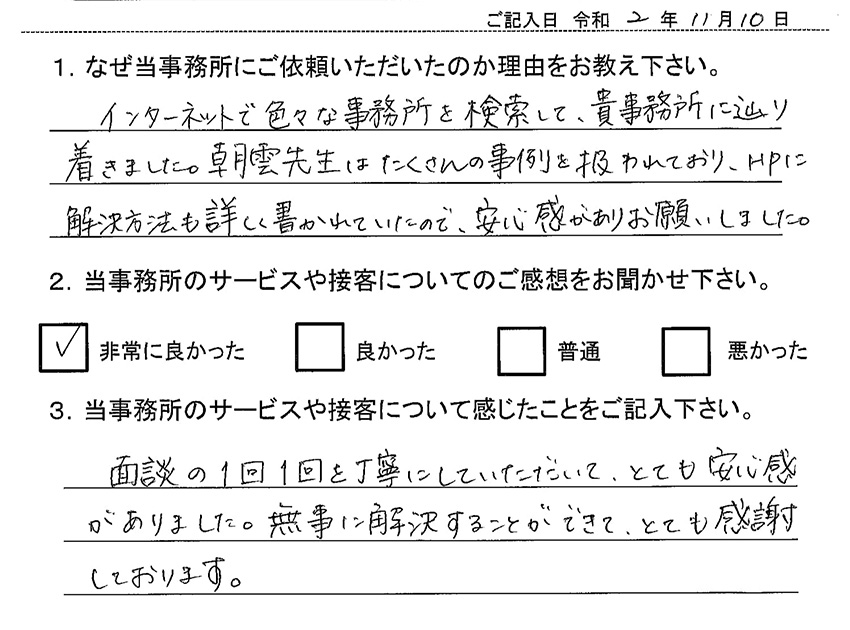 ご記入日 令和 2 年 11月10日
1．なぜ当事務所にご依頼いただいたのか理由をお教え下さい。
インターネットで色々な事務所を検索して、貴事務所に辿り
着きました。朝雲先生はたくさんの事例を扱われており、HPに
解決方法も詳しく書かれていたので、安心感がありお願いしました。
2．当事務所のサービスや接客についてのご感想をお聞かせ下さい。
☑ 非常に良かった □ 良かった □ 普通 □ 悪かった
3．当事務所のサービスや接客について感じたことをご記入下さい。
面談の1回1回を丁寧にしていただいて、とても安心感
がありました。無事に解決することができて、とても感謝
しております。